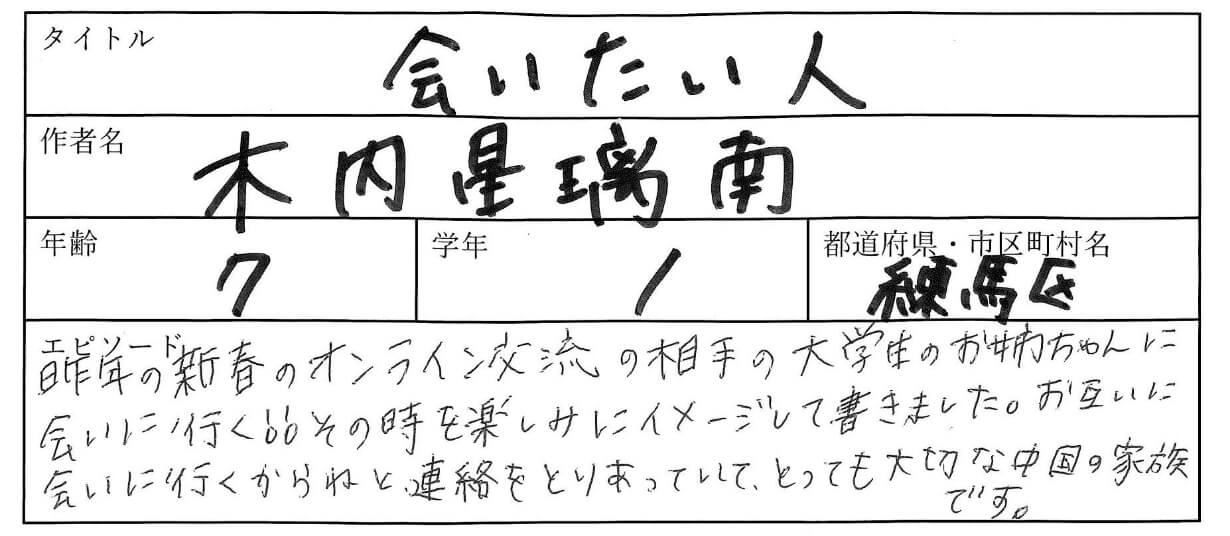 タイトル
会いたい人
作者名
木内星璃南
年齢
7
学年
1
都道府県・市区町村名
練馬区
エピソード
昨年の新春のオンライン交流の相手の大学生のお姉ちゃんに
会いに行く!!その時を楽しみにイメージして書きました。お互いに
会いに行くからねと、連絡をとりあっていて、とっても大切な中国の家族
です。